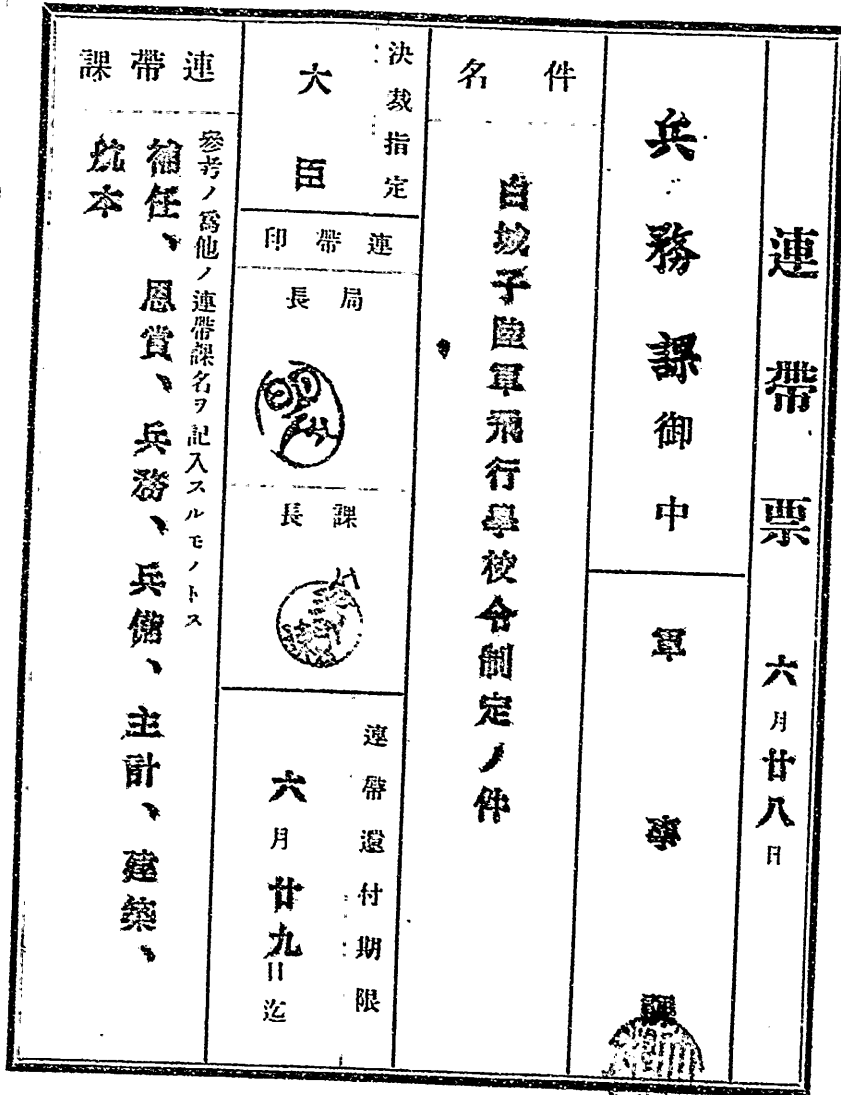 連帶票 六月廿八日
兵務課御中
軍事課
件名
白城子陸軍飛行學校令制定ノ件
決裁指定
大臣
連帶印
局長
課長
連帶還付期限
六月廿九日迄
連帶課
參考ノ爲他ノ連帶課名ヲ記入スルモノトス
補任、恩賞、兵務、兵備、主計、建築、
航本